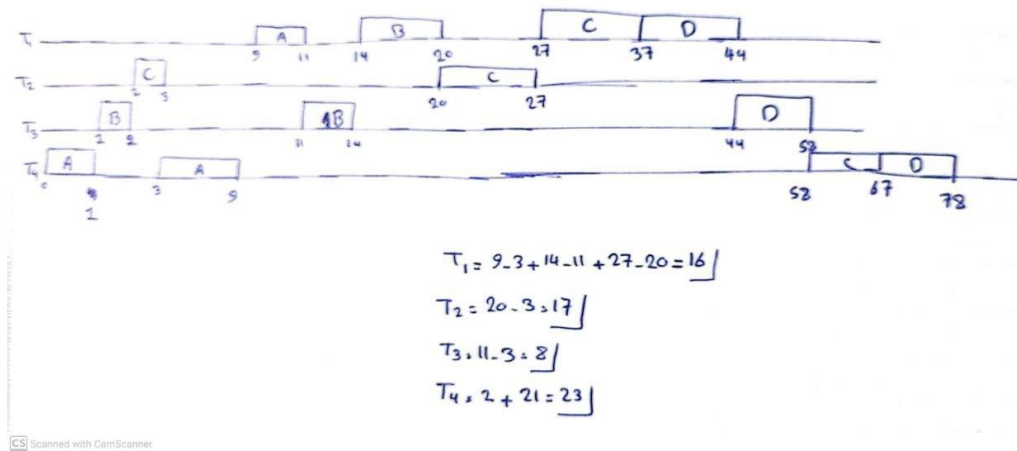 T1 A B C D
9 11 14 20 27 37 44
T2 C C
2 3 20 27
T3 B AB D
1 2 11 14 44 58
T4 A A C D
0 1 3 9 58 67 78
T1 = 9-3+14-11+27-20=16
T2 = 20-3=17
T3 = 11-3=8
T4 = 2+21=23
CS Scanned with CamScanner